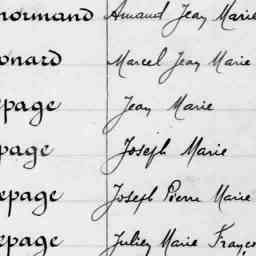 normand Arnaud Jean Marie
onard Marcel Jean Marie
epage Jean Marie
page Joseph Marie
epage Joseph Pierre Marie
epage Julien Marie Franço